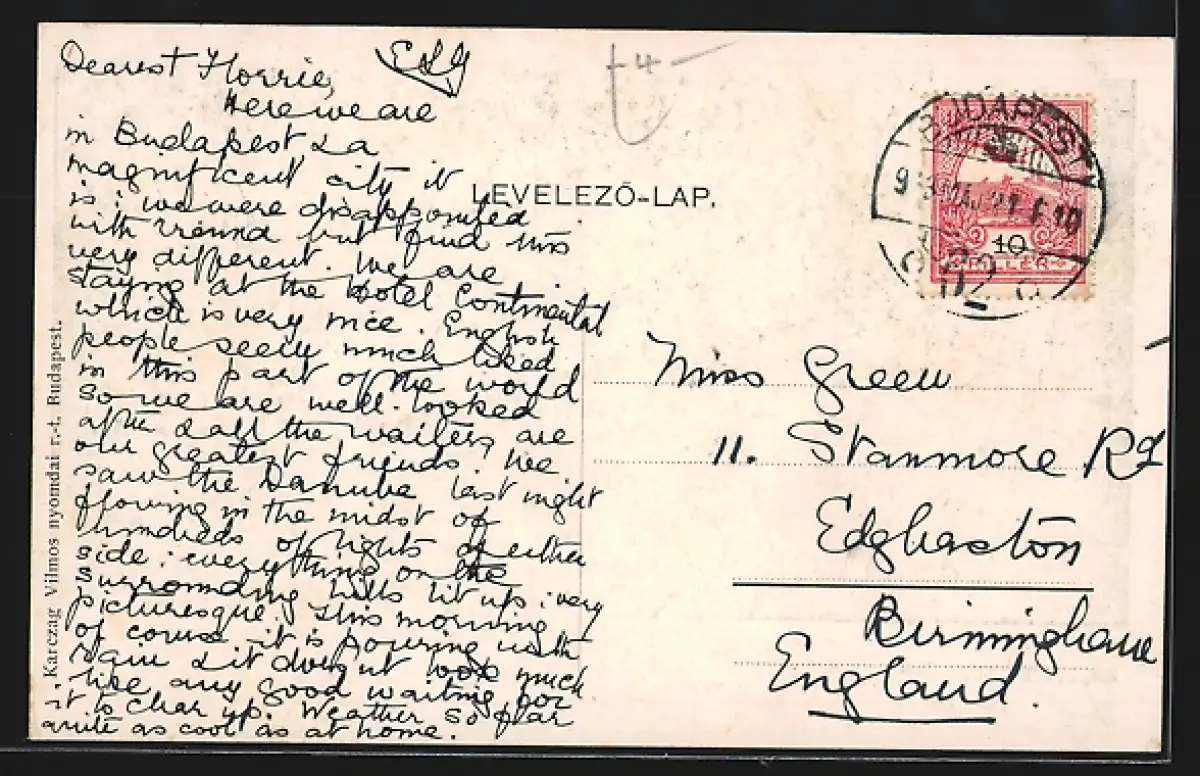 Dearest Florrie,
ELG
Here we are
in Budapest & a
magnificent city it
is : we were disappointed
with Vienna but find this
very different. We are
staying at the Hotel Continental
which is very nice. English
people seem much liked
in this part of the world
so we are well looked
after & all the waiters are
our greatest friends. We
saw the Danube last night
flowing in the midst of
hundreds of lights of either
side : everything on the
surrounding hills lit up : very
picturesque. This morning
of course it is pouring with
rain & it doesn't look much
like any good waiting for
it to clear up. Weather so far
quite as cool as at home.
4
LEVELEZŐ-LAP.
BUDAPEST
10
FILLÉR
Miss Green
11. Stanmore Rd
Edgbaston
Birmingham
England.
Karczág Vilmos nyomdai r.-t. Budapest.